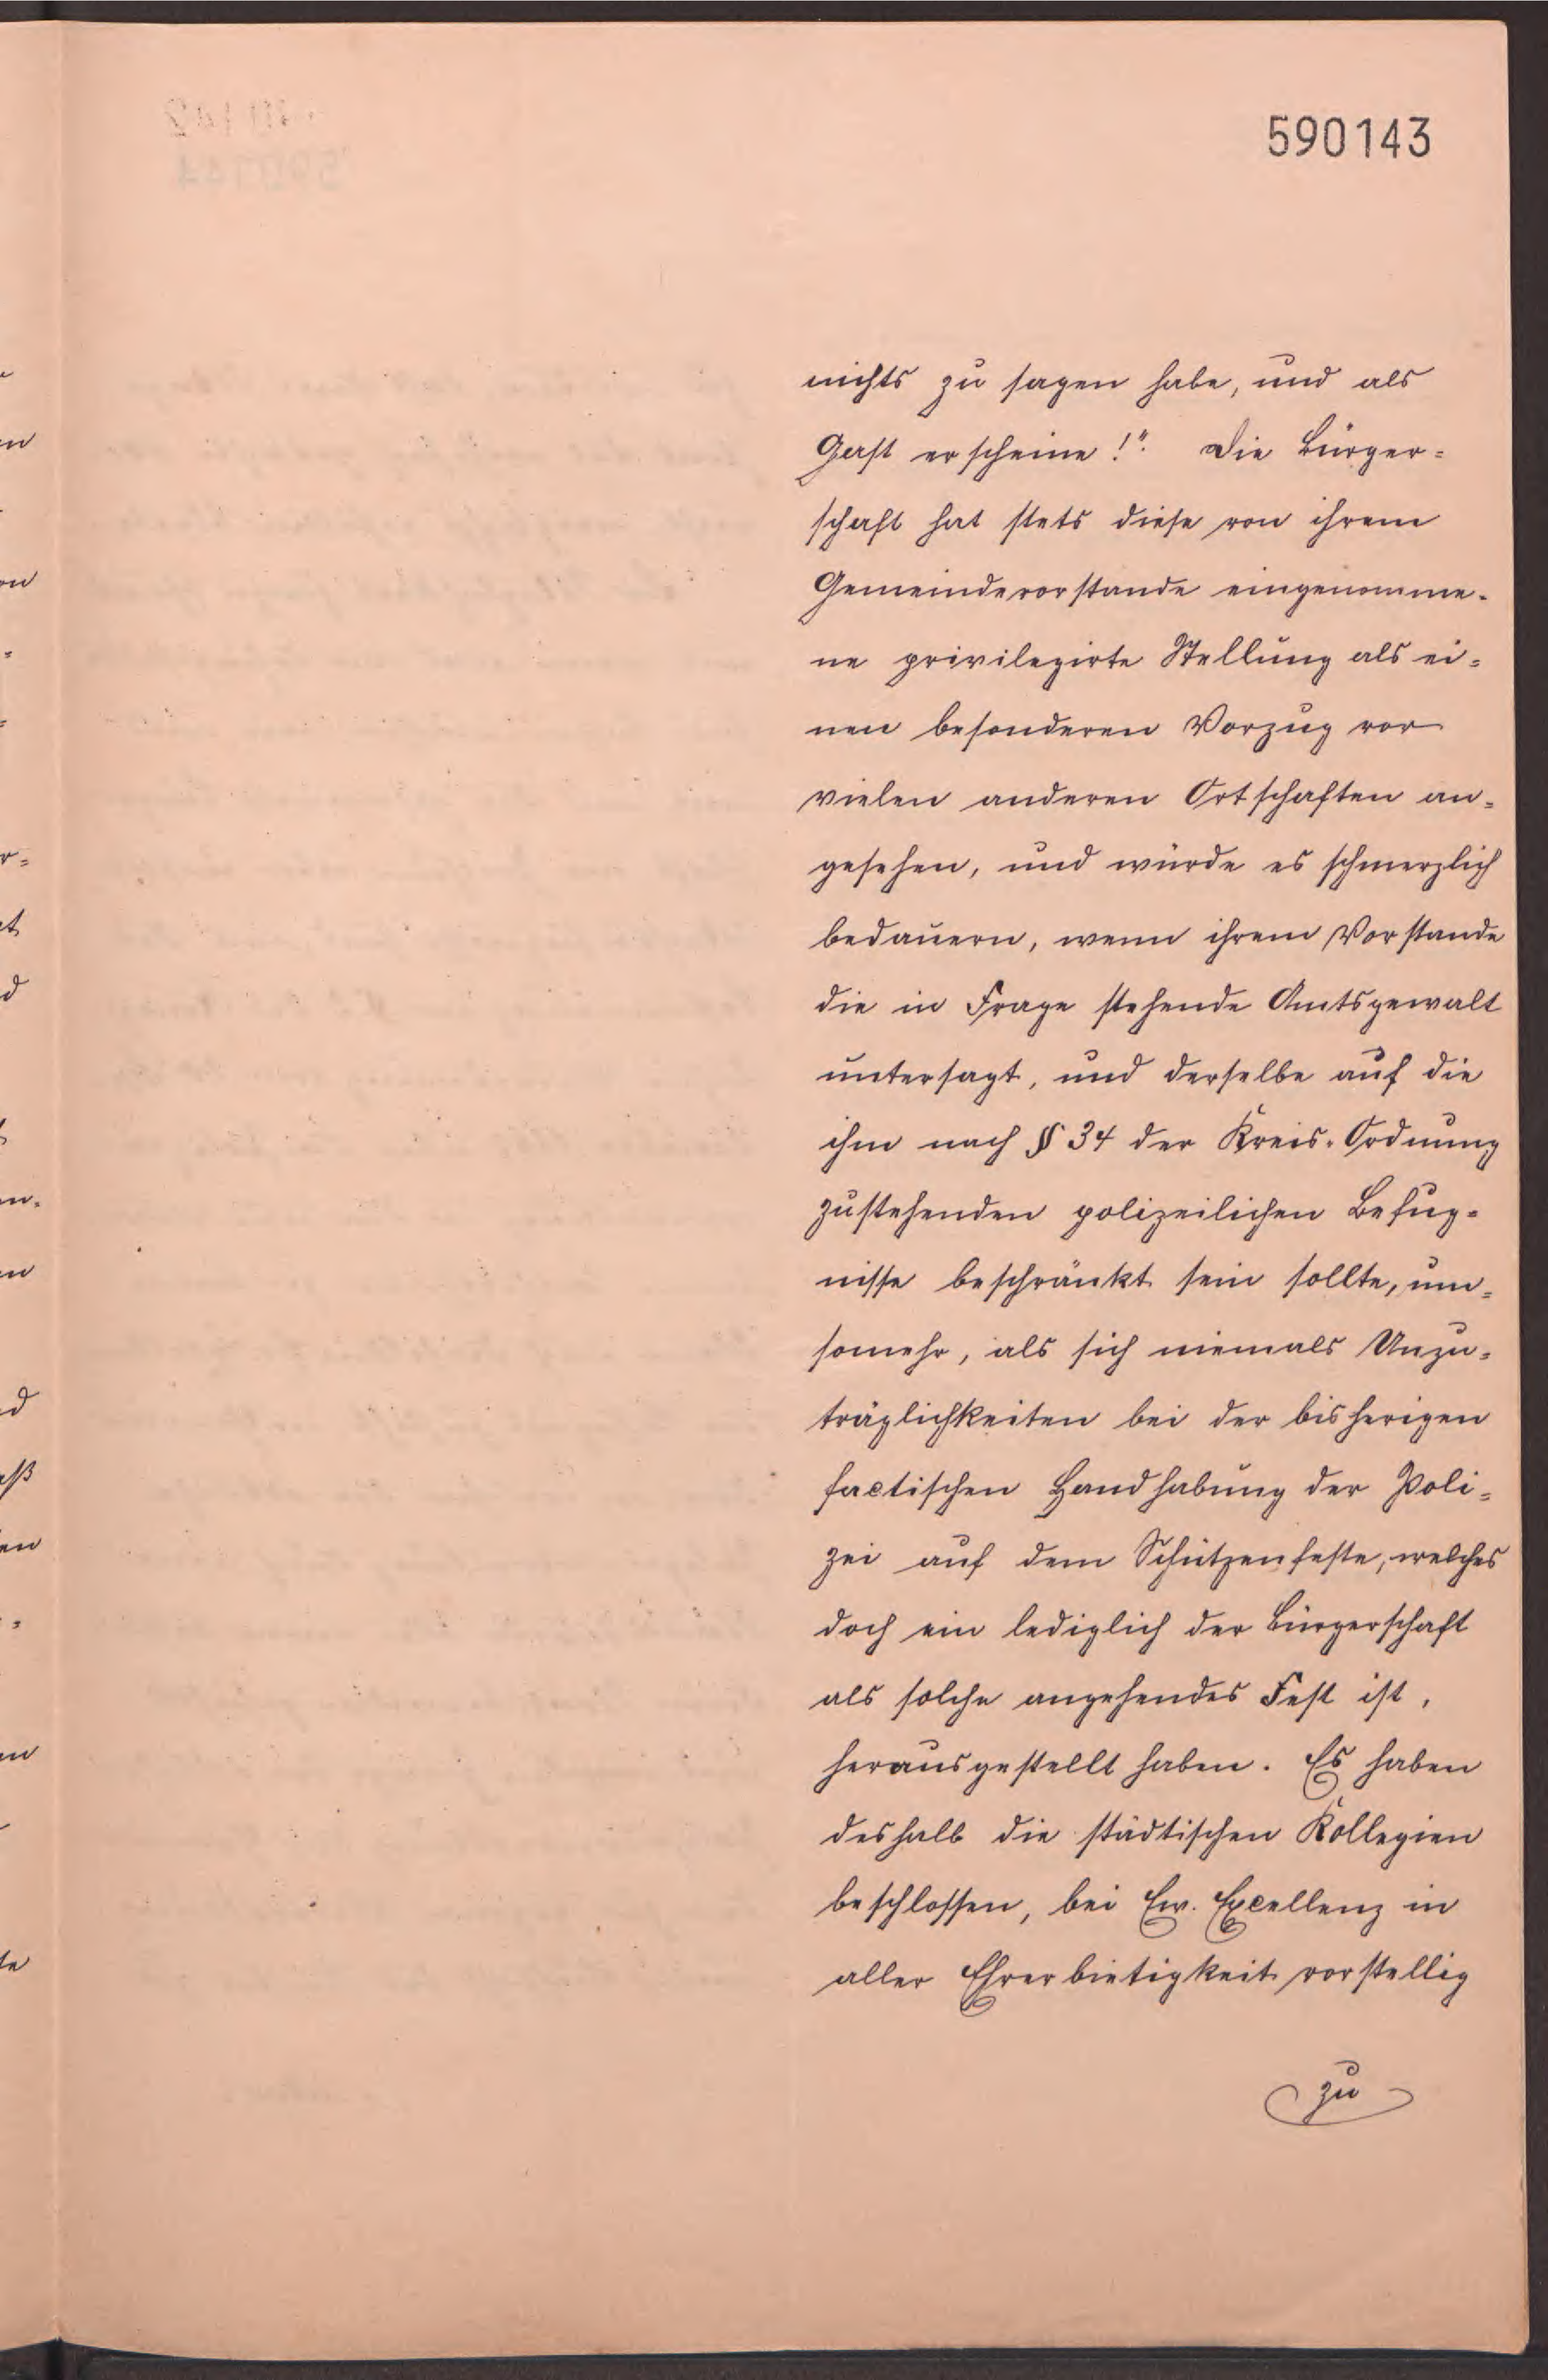 590143
nichts zu sagen habe, und als
Gast erscheine!". Die Bürger=
schaft hat stets diese von ihrem
Gemeindevorstande eingenomme-
ne privilegirte Stellung als ei=
nen besonderen Vorzug vor
vielen anderen Ortschaften an=
gesehen, und würde es schmerzlich
bedauern, wenn ihrem Vorstande
die in Frage stehende Amtsgewalt
untersagt, und derselbe auf die
ihm nach § 34 der Kreis-Ordnung
zustehenden polizeilichen Befug=
nisse beschränkt sein sollte, um=
somehr, als sich niemals Unzu=
träglichkeiten bei der bisherigen
factischen Handhabung der Poli=
zei auf dem Schützenfeste, welches
doch ein lediglich der Bürgerschaft
als solche angehendes Fest ist,
herausgestellt haben. Es haben
deshalb die städtischen Kollegien
beschlossen, bei Ew. Excellenz in
aller Ehrerbietigkeit vorstellig
zu